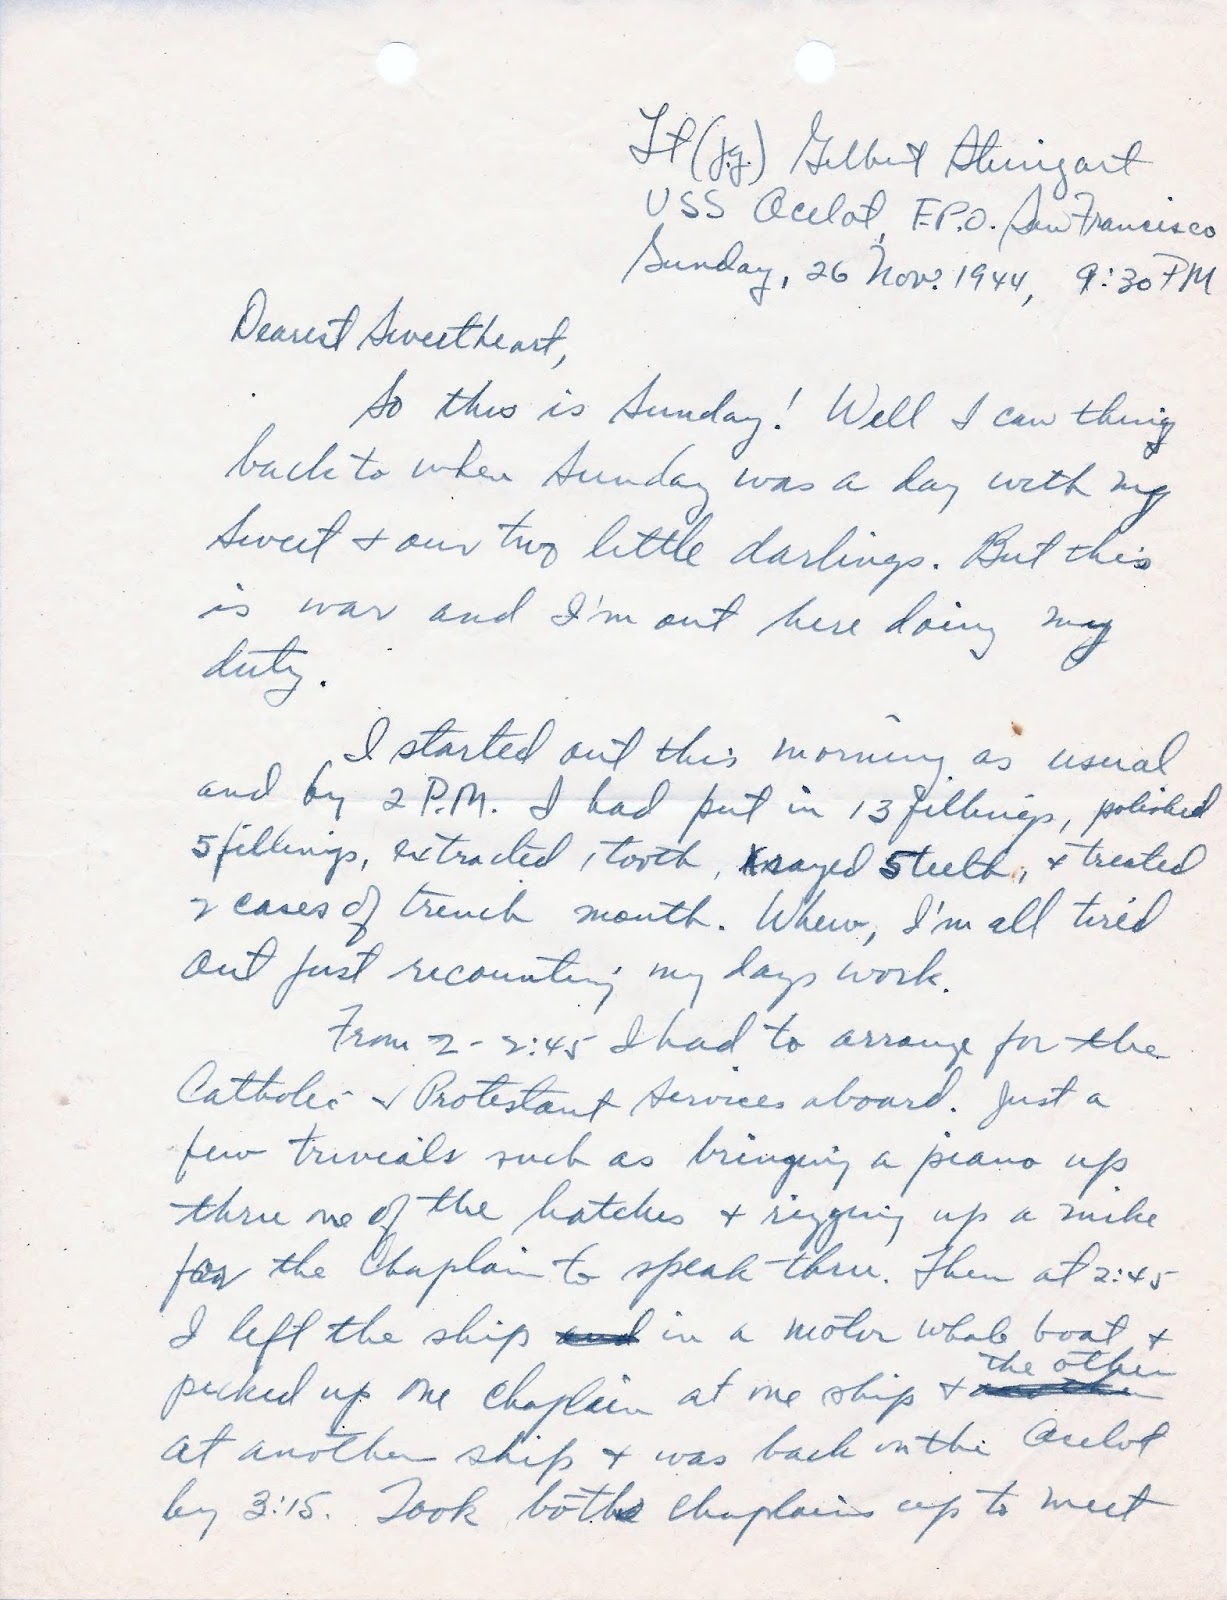 Lt (j.g.) Gilbert Steingart
USS Ocelot, F.P.O. San Francisco
Sunday, 26 Nov. 1944, 9:30 PM
Dearest Sweetheart,
So this is Sunday! Well I can thing
back to when Sunday was a day with my
Sweet + our two little darlings. But this
is war and I'm out here doing my
duty.
I started out this morning as usual
and by 2 P.M. I had put in 13 fillings, polished
5 fillings, extracted 1 tooth, Xrayed 5 teeth, + treated
2 cases of trench mouth. Whew, I'm all tired
out just recounting my days work.
From 2 - 2:45 I had to arrange for the
Catholic + Protestant Services aboard. Just a
few trivials such as bringing a piano up
thru one of the hatches + rigging up a mike
for the Chaplain to speak thru. Then at 2:45
I left the ship and in a motor whale boat +
the other
picked up one chaplain at one ship +
at another ship + was back on the Ocelot
by 3:15. Took both chaplains up to meet